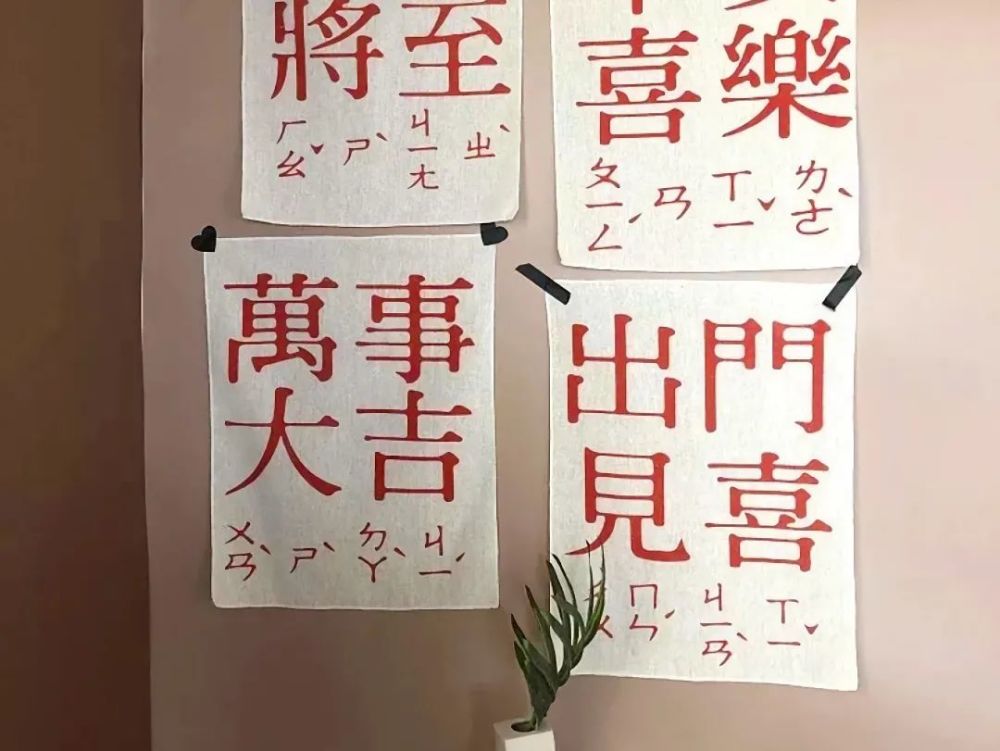 將至
ㄏㄠˇ ㄕˋ ㄐㄧㄤ ㄓˋ
喜樂
ㄆㄧㄥˊ ㄢ ㄒㄧˇ ㄌㄜˋ
萬事
大吉
ㄨㄢˋ ㄕˋ ㄉㄚˋ ㄐㄧˊ
出門
見喜
ㄇㄣˊ ㄐㄧㄢˋ ㄒㄧˇ